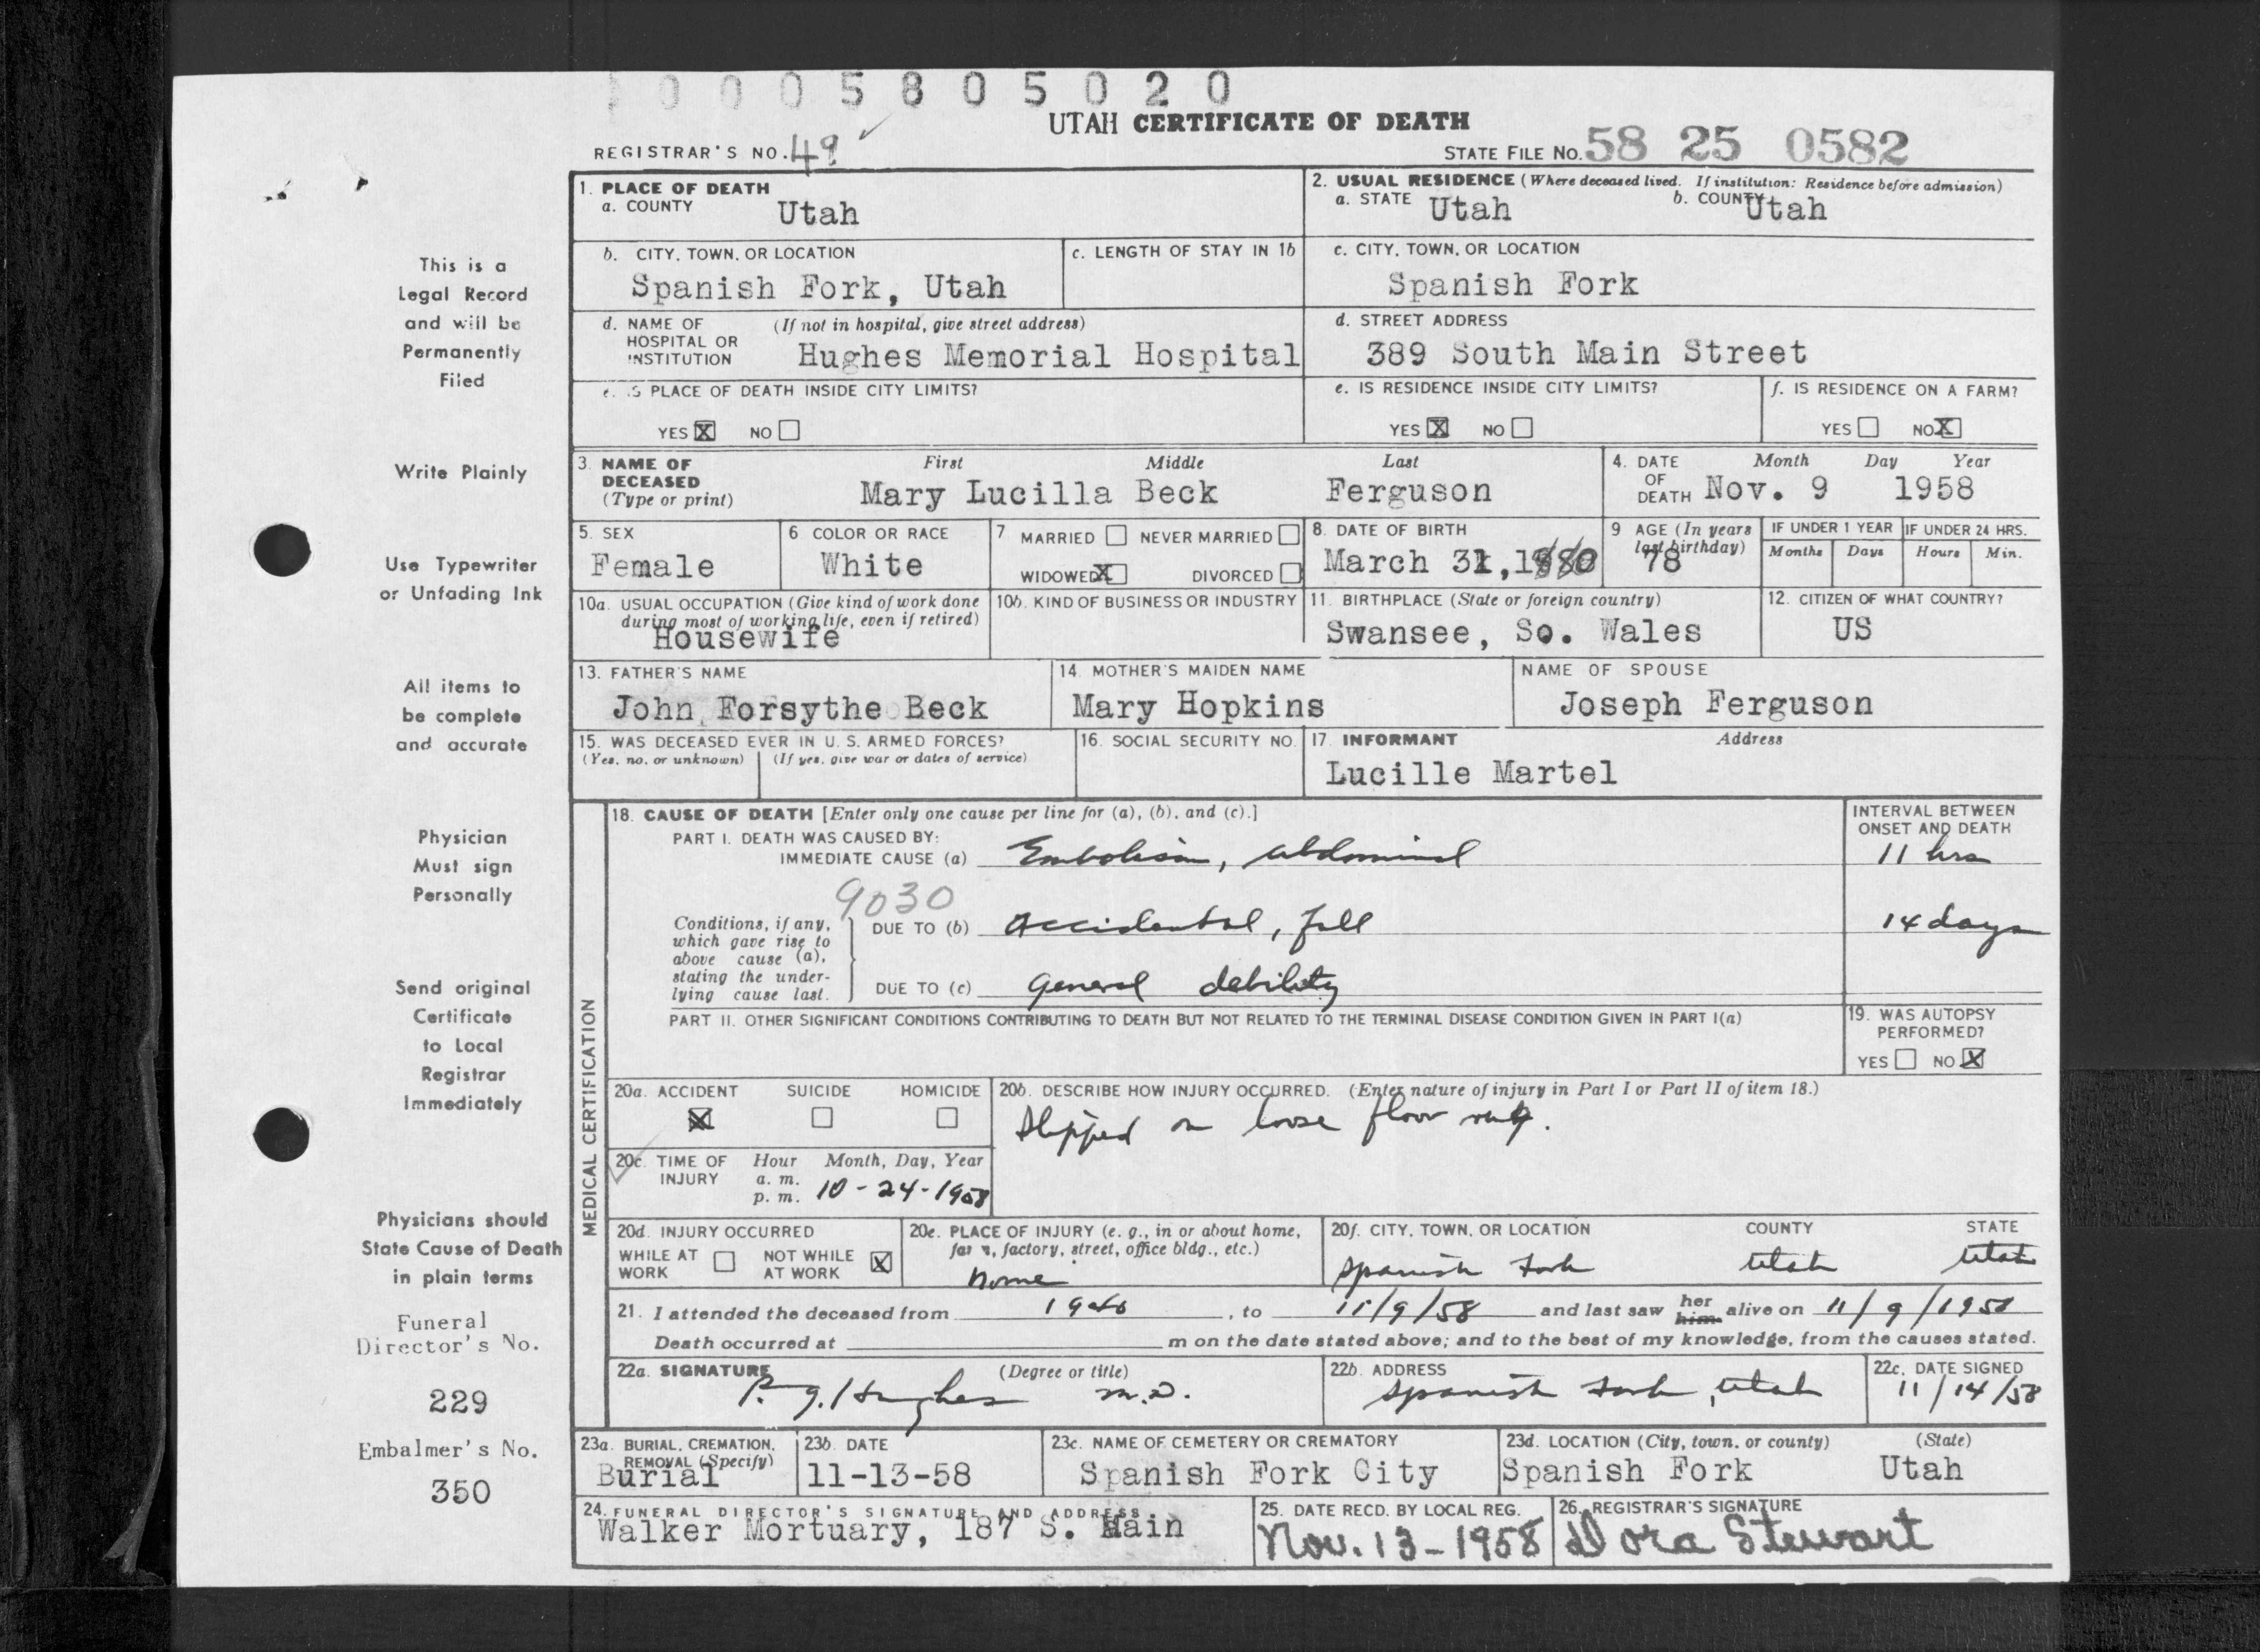 0 0 0 5 8 0 5 0 2 0
UTAH CERTIFICATE OF DEATH
REGISTRAR'S NO. 49
STATE FILE No. 58 25 0582
1. PLACE OF DEATH
a. COUNTY Utah
2. USUAL RESIDENCE (Where deceased lived. If institution: Residence before admission)
a. STATE Utah b. COUNTY Utah
b. CITY, TOWN, OR LOCATION
Spanish Fork, Utah
c. LENGTH OF STAY IN 1b
c. CITY, TOWN, OR LOCATION
Spanish Fork
d. NAME OF HOSPITAL OR INSTITUTION (If not in hospital, give street address)
Hughes Memorial Hospital
d. STREET ADDRESS
389 South Main Street
e. IS PLACE OF DEATH INSIDE CITY LIMITS?
YES X NO
e. IS RESIDENCE INSIDE CITY LIMITS?
YES X NO
f. IS RESIDENCE ON A FARM?
YES NO X
3. NAME OF DECEASED (Type or print)
First Middle Last
Mary Lucilla Beck Ferguson
4. DATE OF DEATH Month Day Year
Nov. 9 1958
5. SEX
Female
6 COLOR OR RACE
White
7 MARRIED NEVER MARRIED
WIDOWED X DIVORCED
8. DATE OF BIRTH
March 31, 1880
9 AGE (In years last birthday)
78
IF UNDER 1 YEAR
Months Days
IF UNDER 24 HRS.
Hours Min.
10a. USUAL OCCUPATION (Give kind of work done during most of working life, even if retired)
Housewife
10b. KIND OF BUSINESS OR INDUSTRY
11. BIRTHPLACE (State or foreign country)
Swansee, So. Wales
12. CITIZEN OF WHAT COUNTRY?
US
13. FATHER'S NAME
John Forsythe Beck
14. MOTHER'S MAIDEN NAME
Mary Hopkins
NAME OF SPOUSE
Joseph Ferguson
15. WAS DECEASED EVER IN U. S. ARMED FORCES?
(Yes, no, or unknown) (If yes, give war or dates of service)
16. SOCIAL SECURITY NO.
17. INFORMANT Address
Lucille Martel
MEDICAL CERTIFICATION
18. CAUSE OF DEATH [Enter only one cause per line for (a), (b), and (c).]
INTERVAL BETWEEN ONSET AND DEATH
PART I. DEATH WAS CAUSED BY:
IMMEDIATE CAUSE (a) Embolism, abdominal 11 hrs
9030
Conditions, if any, which gave rise to above cause (a), stating the underlying cause last.
DUE TO (b) accidental, fall 14 days
DUE TO (c) general debility
PART II. OTHER SIGNIFICANT CONDITIONS CONTRIBUTING TO DEATH BUT NOT RELATED TO THE TERMINAL DISEASE CONDITION GIVEN IN PART I(a)
19. WAS AUTOPSY PERFORMED?
YES NO X
20a. ACCIDENT X SUICIDE HOMICIDE
20b. DESCRIBE HOW INJURY OCCURRED. (Enter nature of injury in Part I or Part II of item 18.)
Slipped on loose floor rug.
20c. TIME OF INJURY Hour Month, Day, Year
a. m.
p. m. 10-24-1958
20d. INJURY OCCURRED
WHILE AT WORK NOT WHILE AT WORK X
20e. PLACE OF INJURY (e. g., in or about home, farm, factory, street, office bldg., etc.)
home
20f. CITY, TOWN, OR LOCATION COUNTY STATE
Spanish Fork Utah Utah
21. I attended the deceased from 1940, to 11/9/58 and last saw her him alive on 11/9/1958
Death occurred at m on the date stated above; and to the best of my knowledge, from the causes stated.
22a. SIGNATURE (Degree or title)
P. G. Hughes M.D.
22b. ADDRESS
Spanish Fork, Utah
22c. DATE SIGNED
11/14/58
23a. BURIAL, CREMATION, REMOVAL (Specify)
Burial
23b. DATE
11-13-58
23c. NAME OF CEMETERY OR CREMATORY
Spanish Fork City
23d. LOCATION (City, town, or county) (State)
Spanish Fork Utah
24. FUNERAL DIRECTOR'S SIGNATURE AND ADDRESS
Walker Mortuary, 187 S. Main
25. DATE RECD. BY LOCAL REG.
Nov. 13-1958
26. REGISTRAR'S SIGNATURE
Dora Stewart
This is a
Legal Record
and will be
Permanently
Filed
Write Plainly
Use Typewriter
or Unfading Ink
All items to
be complete
and accurate
Physician
Must sign
Personally
Send original
Certificate
to Local
Registrar
Immediately
Physicians should
State Cause of Death
in plain terms
Funeral
Director's No.
229
Embalmer's No.
350